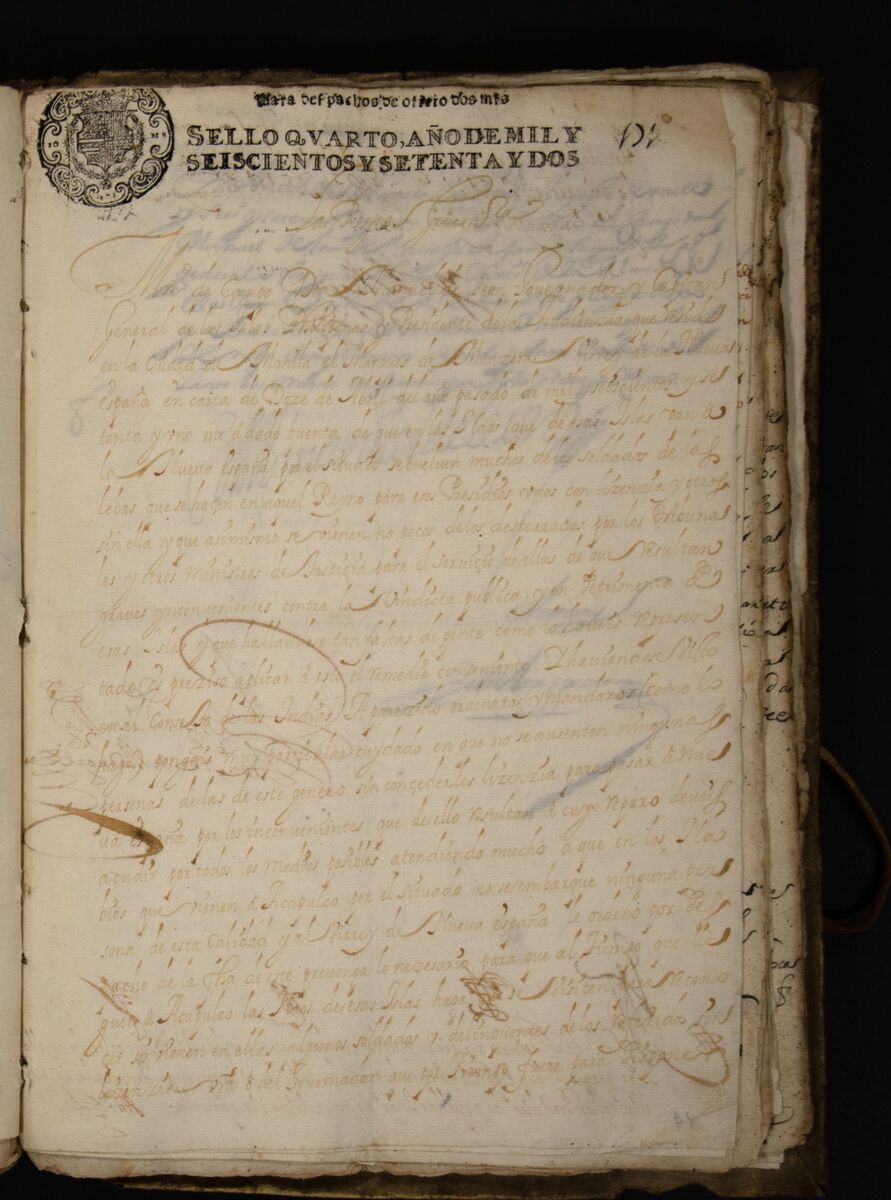 Para despachos de oficio dos mrs
SELLO QVARTO, AÑO DE MIL Y
SEISCIENTOS Y SETENTA Y DOS
La Reyna Gouern.ra
Mre de Campo Don Manuel de Leon Gouernador y Capitan
General de las Islas Philipinas y Presidente de la Audiencia que reside
en la Ciudad de Manila el Marques de Manzera Virrey de la Nueua
españa en carta de Doze de Abril del año pasado de mill y seiscientos y se
tenta y vno me á dado quenta de que en las Naos que de esas Islas van á
la Nueua españa por el situado se bueluen muchos de los soldados de las
lebas que se hacen en aquel Reyno para esos Presidios vnos con lizenzia y otros
sin ella y que asimismo se vienen no pocos de los desterrados por los Tribuna
les y otros Ministros de Justizia para el seruizio de ellas de que resultan
graues ynconuenientes contra la Vindicta publica y en detrimento de
esas Islas y que hallandose tan faltas de gente como lo haueis represen
tado es preziso aplicar á esto el remedio conueniente Y hauiendose visto
en el Consejo de las Indias A parezido ordenaros y mandaros (como lo
hago) pongais muy particular cuydado en que no se ausenten ningunas
personas de las de este genero sin concederles lizenzia para pasar á nue
ua españa por los inconuenientes que de ello resultan á cuyo reparo deueis
acudir por todos los medios posibles atendiendo mucho a que en los Na
bios que vienen á Acapulco por el situado no se embarque ninguna per
sona de esta calidad y al Virrey de Nueua españa le ordeno por des
pacho de la fha de este preuenga lo nezesario para que al tiempo que lle
guen á Acapulco las Naos de esas Islas haga se visiten para recono
cer si vienen en ellas algunos soldados v delinquentes de los referidos sin
lizenzia vra ó del Gouernador que al tiempo fuere para